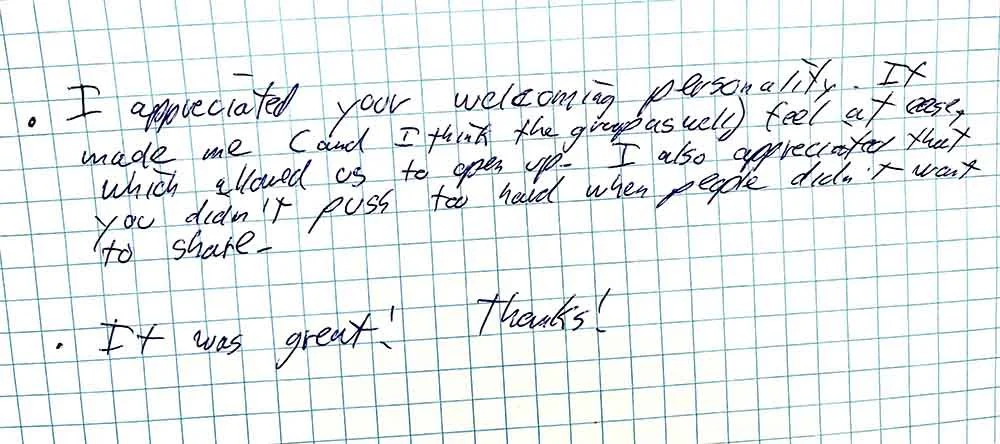 • I appreciated your welcoming personality. It
made me (and I think the group as well) feel at ease,
which allowed us to open up- I also appreciated that
you didn't push too hard when people didn't want
to share-
• It was great! Thanks!